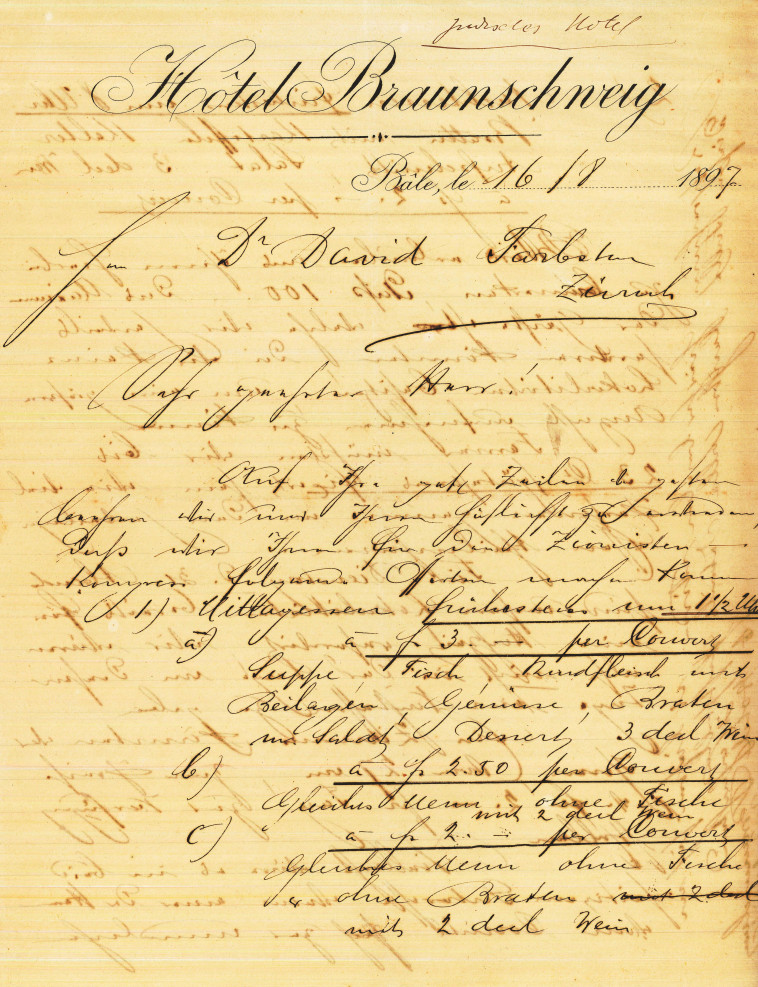 jüdisches Hotel
Hôtel Braunschweig
Bâle, le 16/8 1897
Herrn Dr David Farbstein
Zürich
Sehr geehrter Herr!
Auf Ihre Zeilen gestern
wir nur Ihnen
Dass wir Ihnen für Zionisten-
Kongress folgende Offerten machen können
1) Mittagessen frühestens um 1 1/2 Uhr
a) à fr 3.— per Couvert
Suppe, Fisch, Rindfleisch mit
Beilagen, Gemüse, Braten
u Salat, Dessert, 3 decl Wein
b) à fr 2.50 per Couvert
Gleiches Menu ohne Fische
mit 2 decl Wein
c) à fr 2.— per Couvert
Gleiches Menu ohne Fische
& ohne Braten mit 2 decl
mit 2 decl Wein